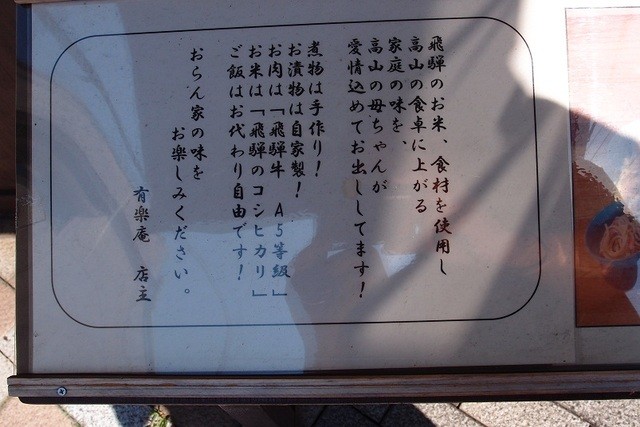 飛騨のお米、食材を使用し
高山の食卓に上がる
家庭の味を、
高山の母ちゃんが
愛情込めてお出ししてます！
煮物は手作り！
お漬物は自家製！
お肉は「飛騨牛 A5等級」
お米は「飛騨のコシヒカリ」
ご飯はお代わり自由です！
おらん家の味を
お楽しみください。
有楽庵 店主